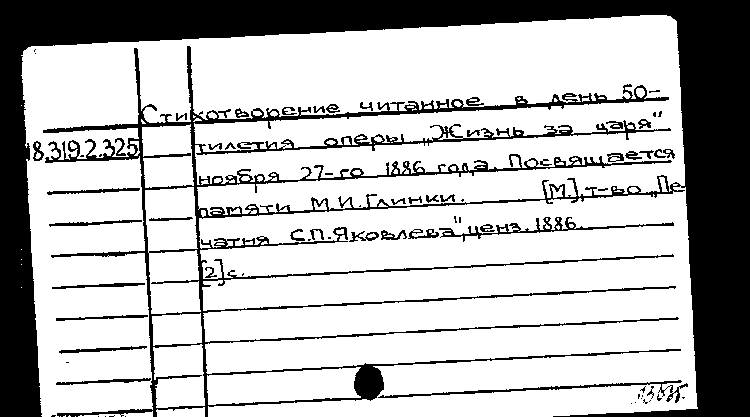 Стихотворение, читанное в день 50-
18.319.2.325 тилетия оперы „Жизнь за царя"
ноября 27-го 1886 года. Посвящается
памяти М.И.Глинки. [М.], т-во „Пе-
чатня С.П.Яковлева", ценз. 1886.
[2] с.